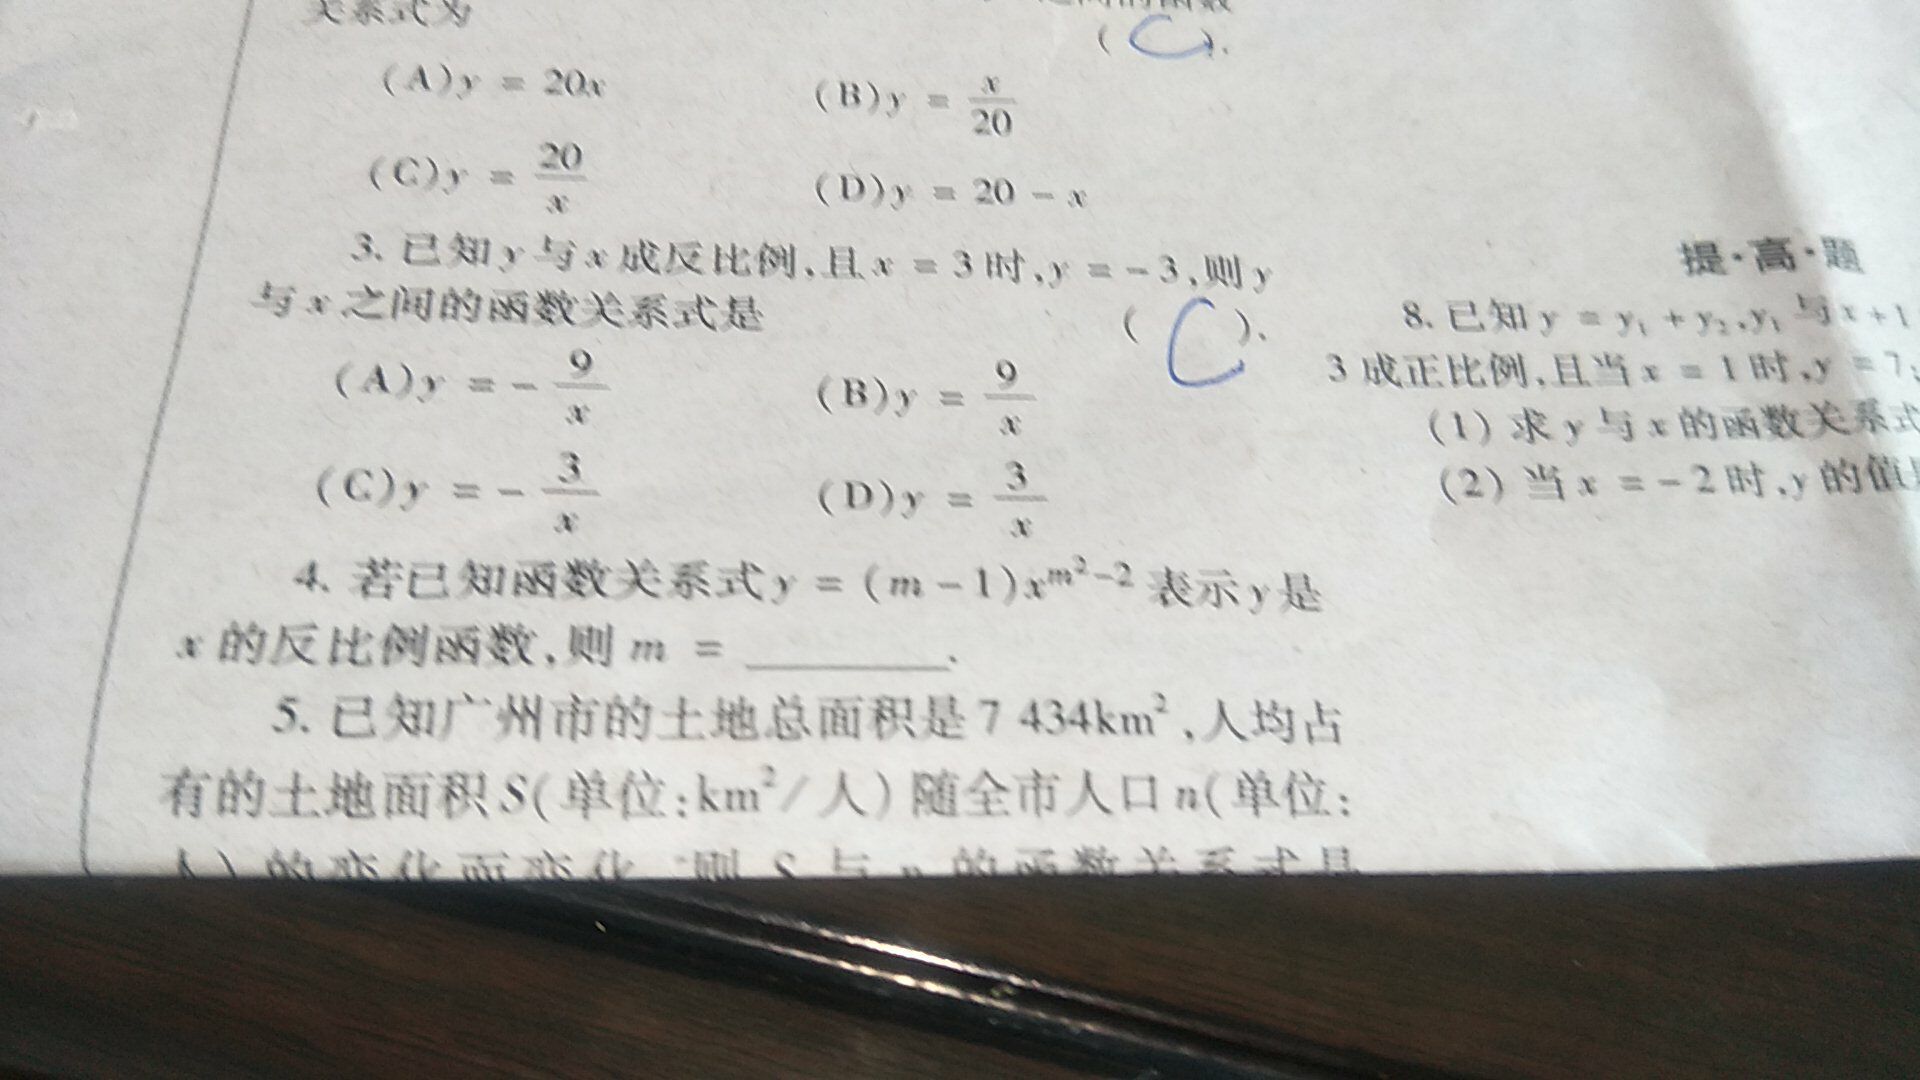 关系式为
( C ).
(A)y = 20x (B)y = x/20
(C)y = 20/x (D)y = 20 - x
3. 已知y与x成反比例,且x = 3时,y = -3,则y
与x之间的函数关系式是 ( C ).
(A)y = - 9/x (B)y = 9/x
(C)y = - 3/x (D)y = 3/x
4. 若已知函数关系式y = (m-1)x^{m²-2}表示y是
x的反比例函数,则m = ________.
5. 已知广州市的土地总面积是7 434km²,人均占
有的土地面积S(单位:km²/人)随全市人口n(单位:
人)的变化而变化,则S与n的函数关系式是
提·高·题
8. 已知y = y₁ + y₂,y₁与x+1
3成正比例,且当x = 1时,y = 7;
(1) 求y与x的函数关系式
(2) 当x = -2时,y的值